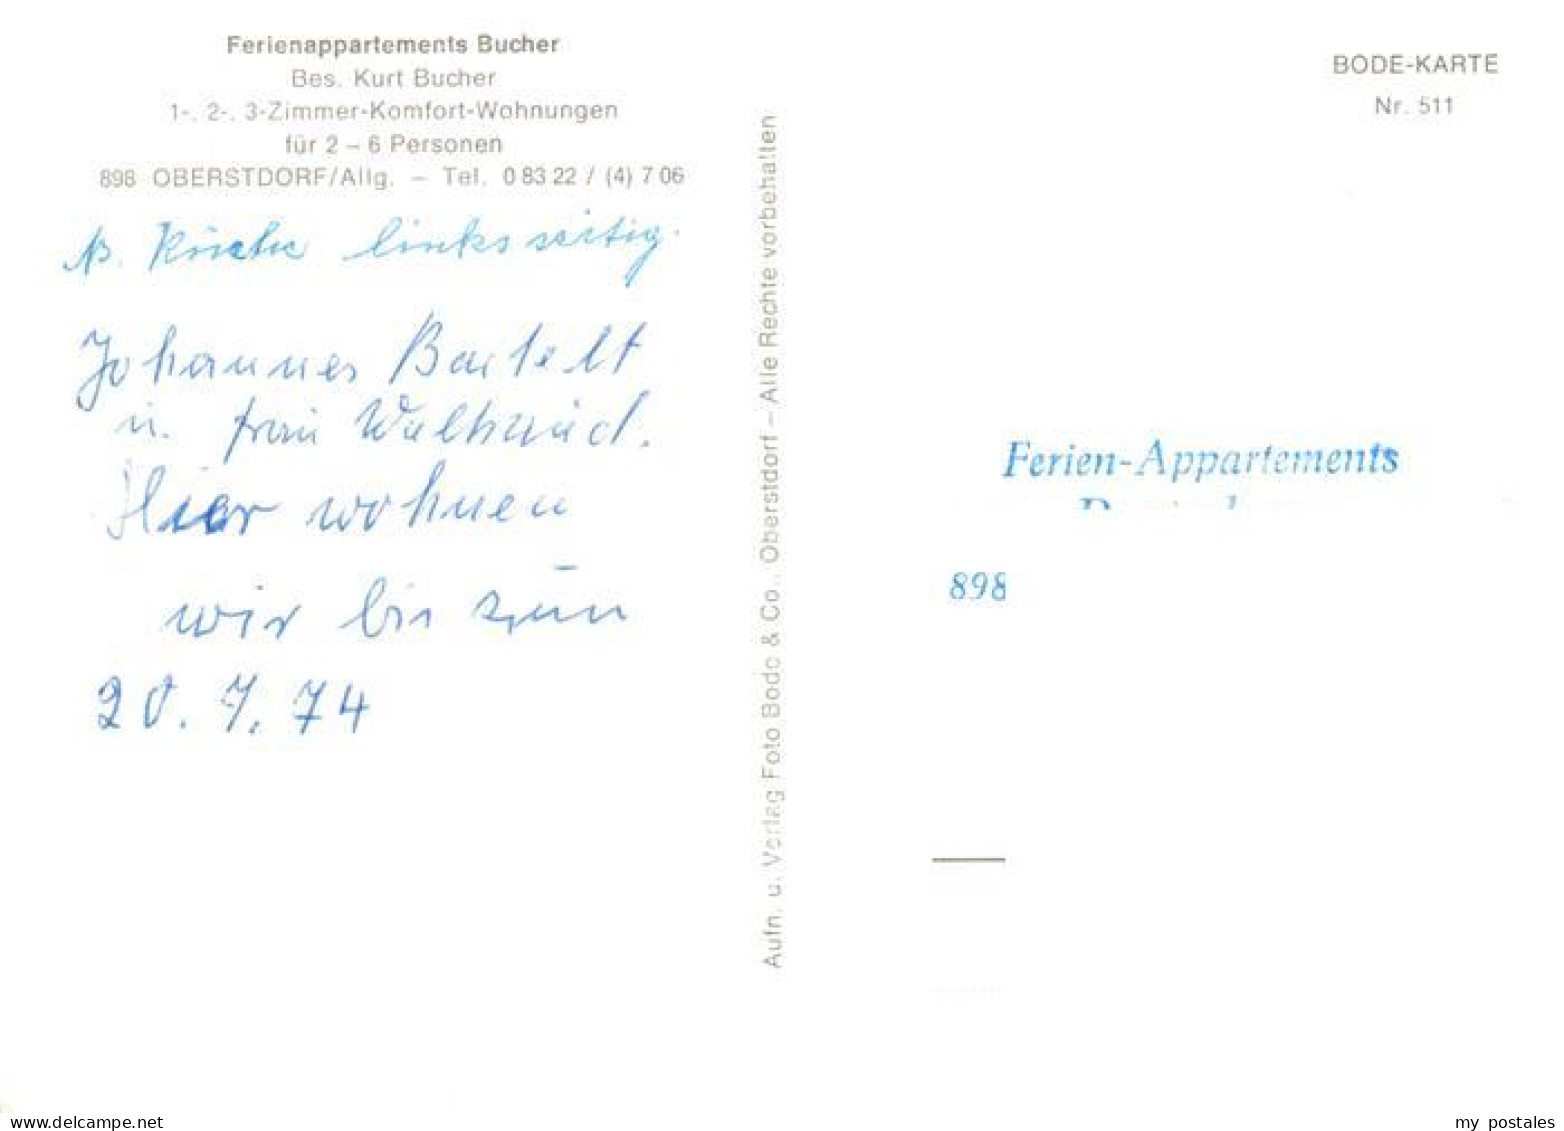 Ferienappartements Bucher
Bes. Kurt Bucher
1-, 2-, 3-Zimmer-Komfort-Wohnungen
für 2 – 6 Personen
898 OBERSTDORF/Allg. – Tel. 0 83 22 / (4) 7 06
Küche linksseitig.
Johannes Bartelt
u. Frau Waltraud.
Hier wohnen
wir bis zum
20. 7. 74
Aufn. u. Verlag Foto Bode & Co., Oberstdorf – Alle Rechte vorbehalten
BODE-KARTE
Nr. 511
Ferien-Appartements
898
www.delcampe.net
my_postales